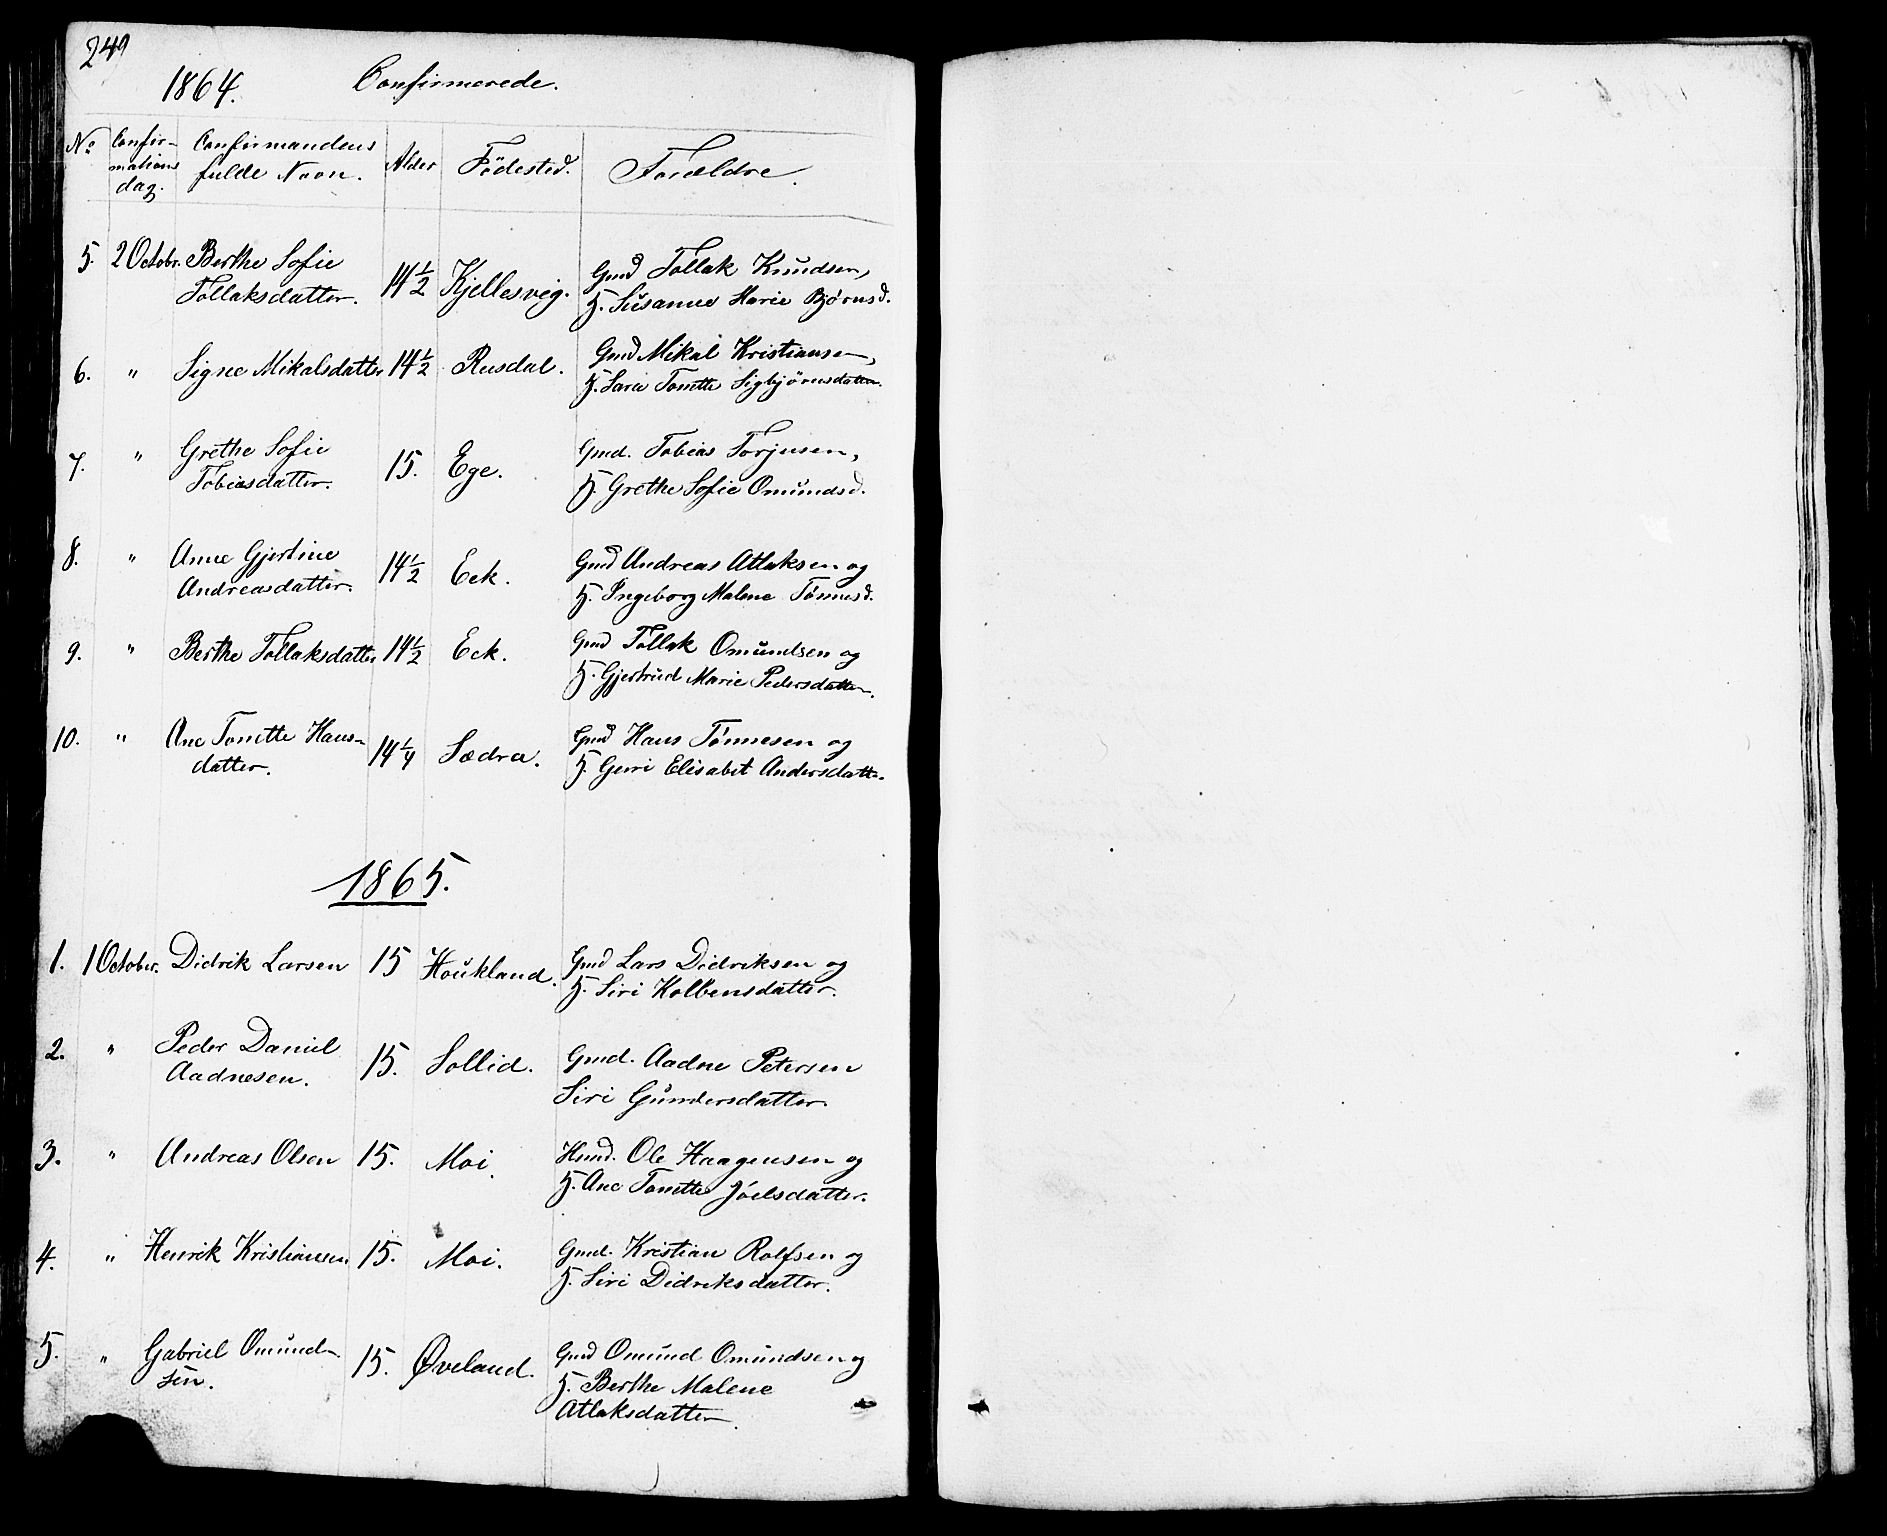 249
1864. Confirmerede.
No Confir- Confirmandens Alder Födested. Forældre.
mations fulde Navn.
dag.
5. 2 Octobr. Berthe Sofie 14 1/2 Kjellesvig. Gmd Tollak Knudsen,
Tollaksdatter. H. Susanne Marie Bjørnsd.
6. " Signe Mikalsdatter 14 1/2 Rusdal. Gmd Mikal Kristiansen,
H. Sara Tonette Sigbjørnsdatter.
7. " Grethe Sofie 15. Ege. Gmd. Tobias Torjusen,
Tobiasdatter. H. Grethe Sofie Omundsd.
8. " Anne Gjertine 14 1/2 Eek. Gmd Andreas Atlaksen og
Andreasdatter. H. Ingeborg Malene Tønnesd.
9. " Berthe Tollaksdatter 14 1/2 Eek. Gmd Tollak Omundsen og
H. Gjertrud Marie Pedersdatter.
10. " Ane Tonette Hans- 14 1/4 Sædra. Gmd Hans Tönnesen og
datter. H. Guri Elisabet Andersdatter.
1865.
1. 1 October. Didrik Larsen 15 Houkland. Gmd Lars Didriksen og
H. Siri Kolbensdatter.
2. " Peder Daniel 15. Sollid. Gmd. Aadne Petersen
Aadnesen. Siri Gundersdatter.
3. " Andreas Olsen 15. Moi. Hmd. Ole Haagensen og
H. Ane Tonette Jóelsdatter.
4. " Henrik Kristiansen 15. Moi. Gmd. Kristian Rolfsen og
H. Siri Didriksdatter.
5. " Gabriel Omund- 15. Øveland. Gmd Omund Omundsen og
sen. H. Berthe Malene
Atlaksdatter.